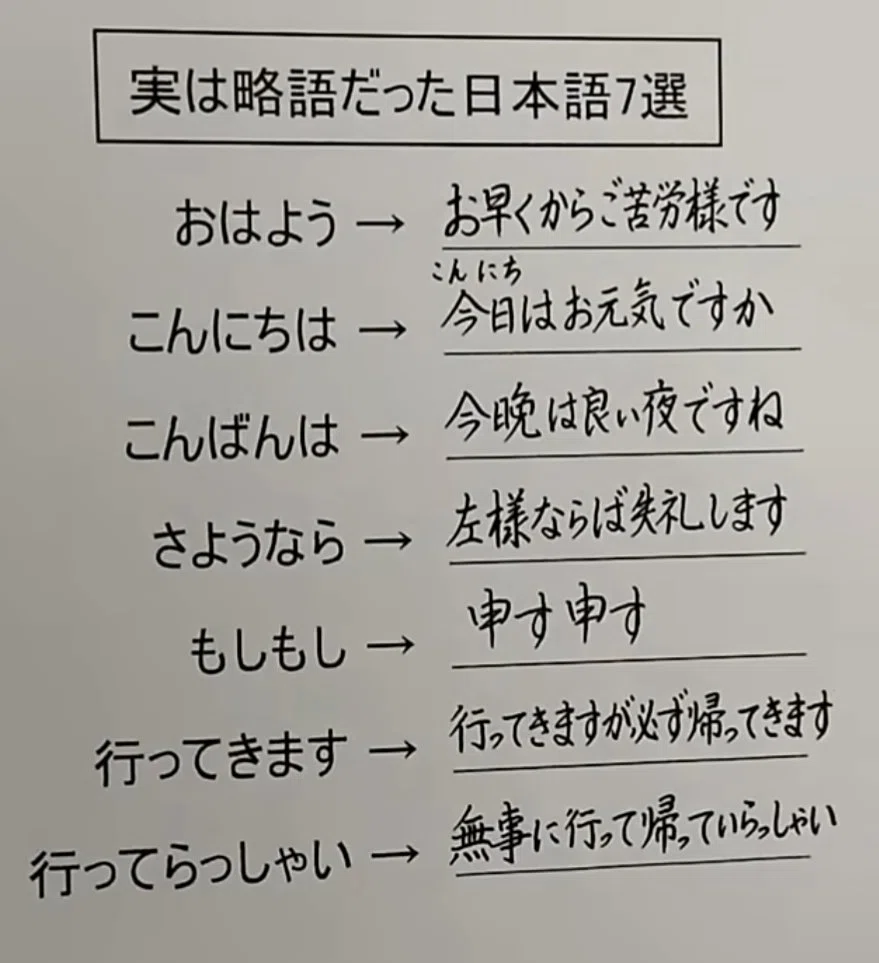 実は略語だった日本語7選
おはよう → お早くからご苦労様です
こんにち
こんにちは → 今日はお元気ですか
こんばんは → 今晩は良い夜ですね
さようなら → 左様ならば失礼します
もしもし → 申す申す
行ってきます → 行ってきますが必ず帰ってきます
行ってらっしゃい → 無事に行って帰っていらっしゃい